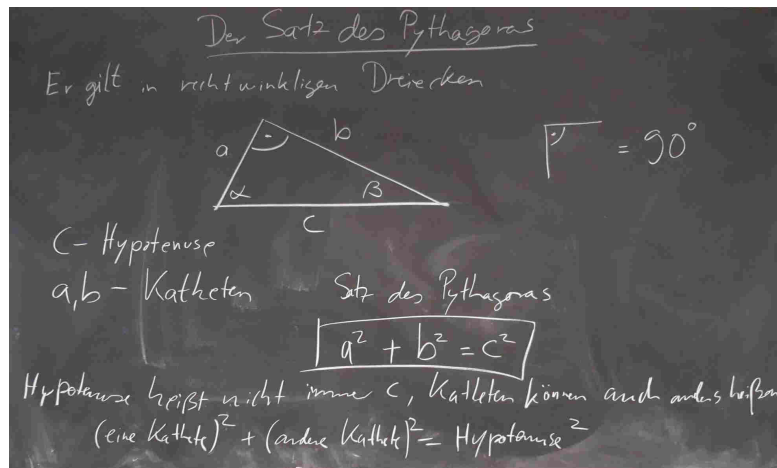 Der Satz des Pythagoras
Er gilt in rechtwinkligen Dreiecken
a b
= 90°
α β
c
C - Hypotenuse
a,b - Katheten
Satz des Pythagoras
a² + b² = c²
Hypotenuse heißt nicht immer c, Katheten können auch anders heißen
(eine Kathete)² + (andere Kathete)² = Hypotenuse²